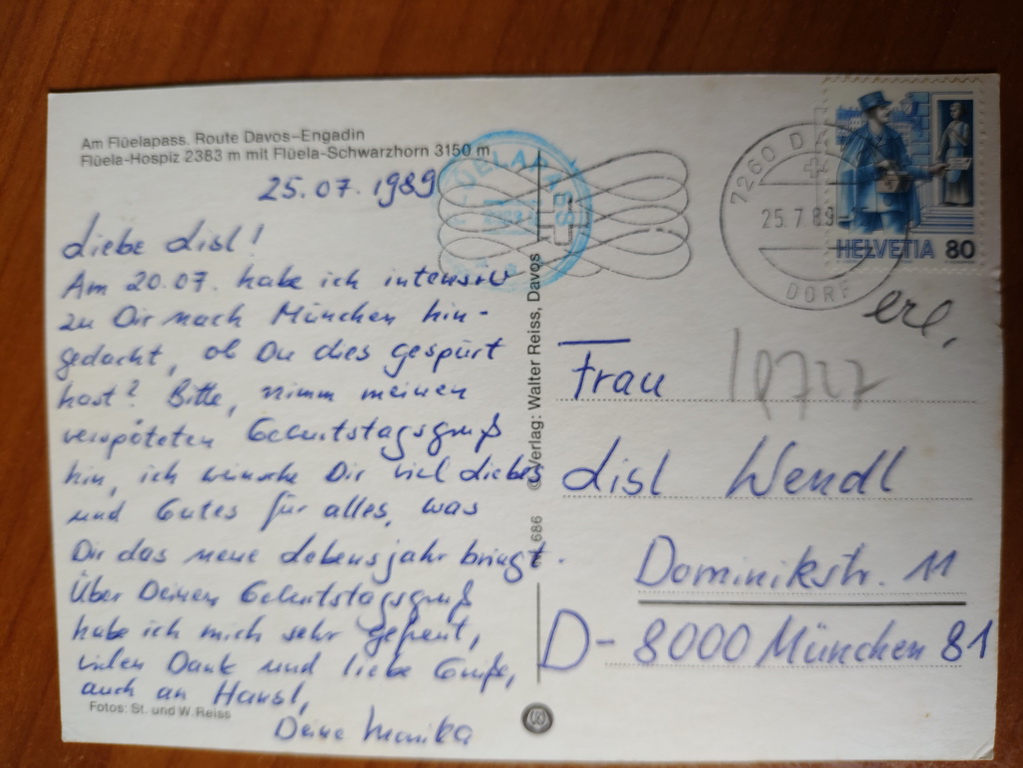 Am Flüelapass. Route Davos–Engadin
Flüela-Hospiz 2383 m mit Flüela-Schwarzhorn 3150 m
25.07.1989
Liebe Lisl!
Am 20.07. habe ich intensiv
zu Dir nach München hin-
gedacht, ob Du dies gespürt
hast? Bitte, nimm meinen
verspäteten Geburtstagsgruß
hin, ich wünsche Dir viel Liebes
und Gutes für alles, was
Dir das neue Lebensjahr bringt.
Über Deinen Geburtstagsgruß
habe ich mich sehr gefreut,
vielen Dank und liebe Grüße,
auch an Hansl,
Deine Monika
Fotos: St. und W. Reiss
686 © Verlag: Walter Reiss, Davos
7260 D
25.7.89
DORF
HELVETIA 80
Frau
Lisl Wendl
Dominikstr. 11
D-8000 München 81